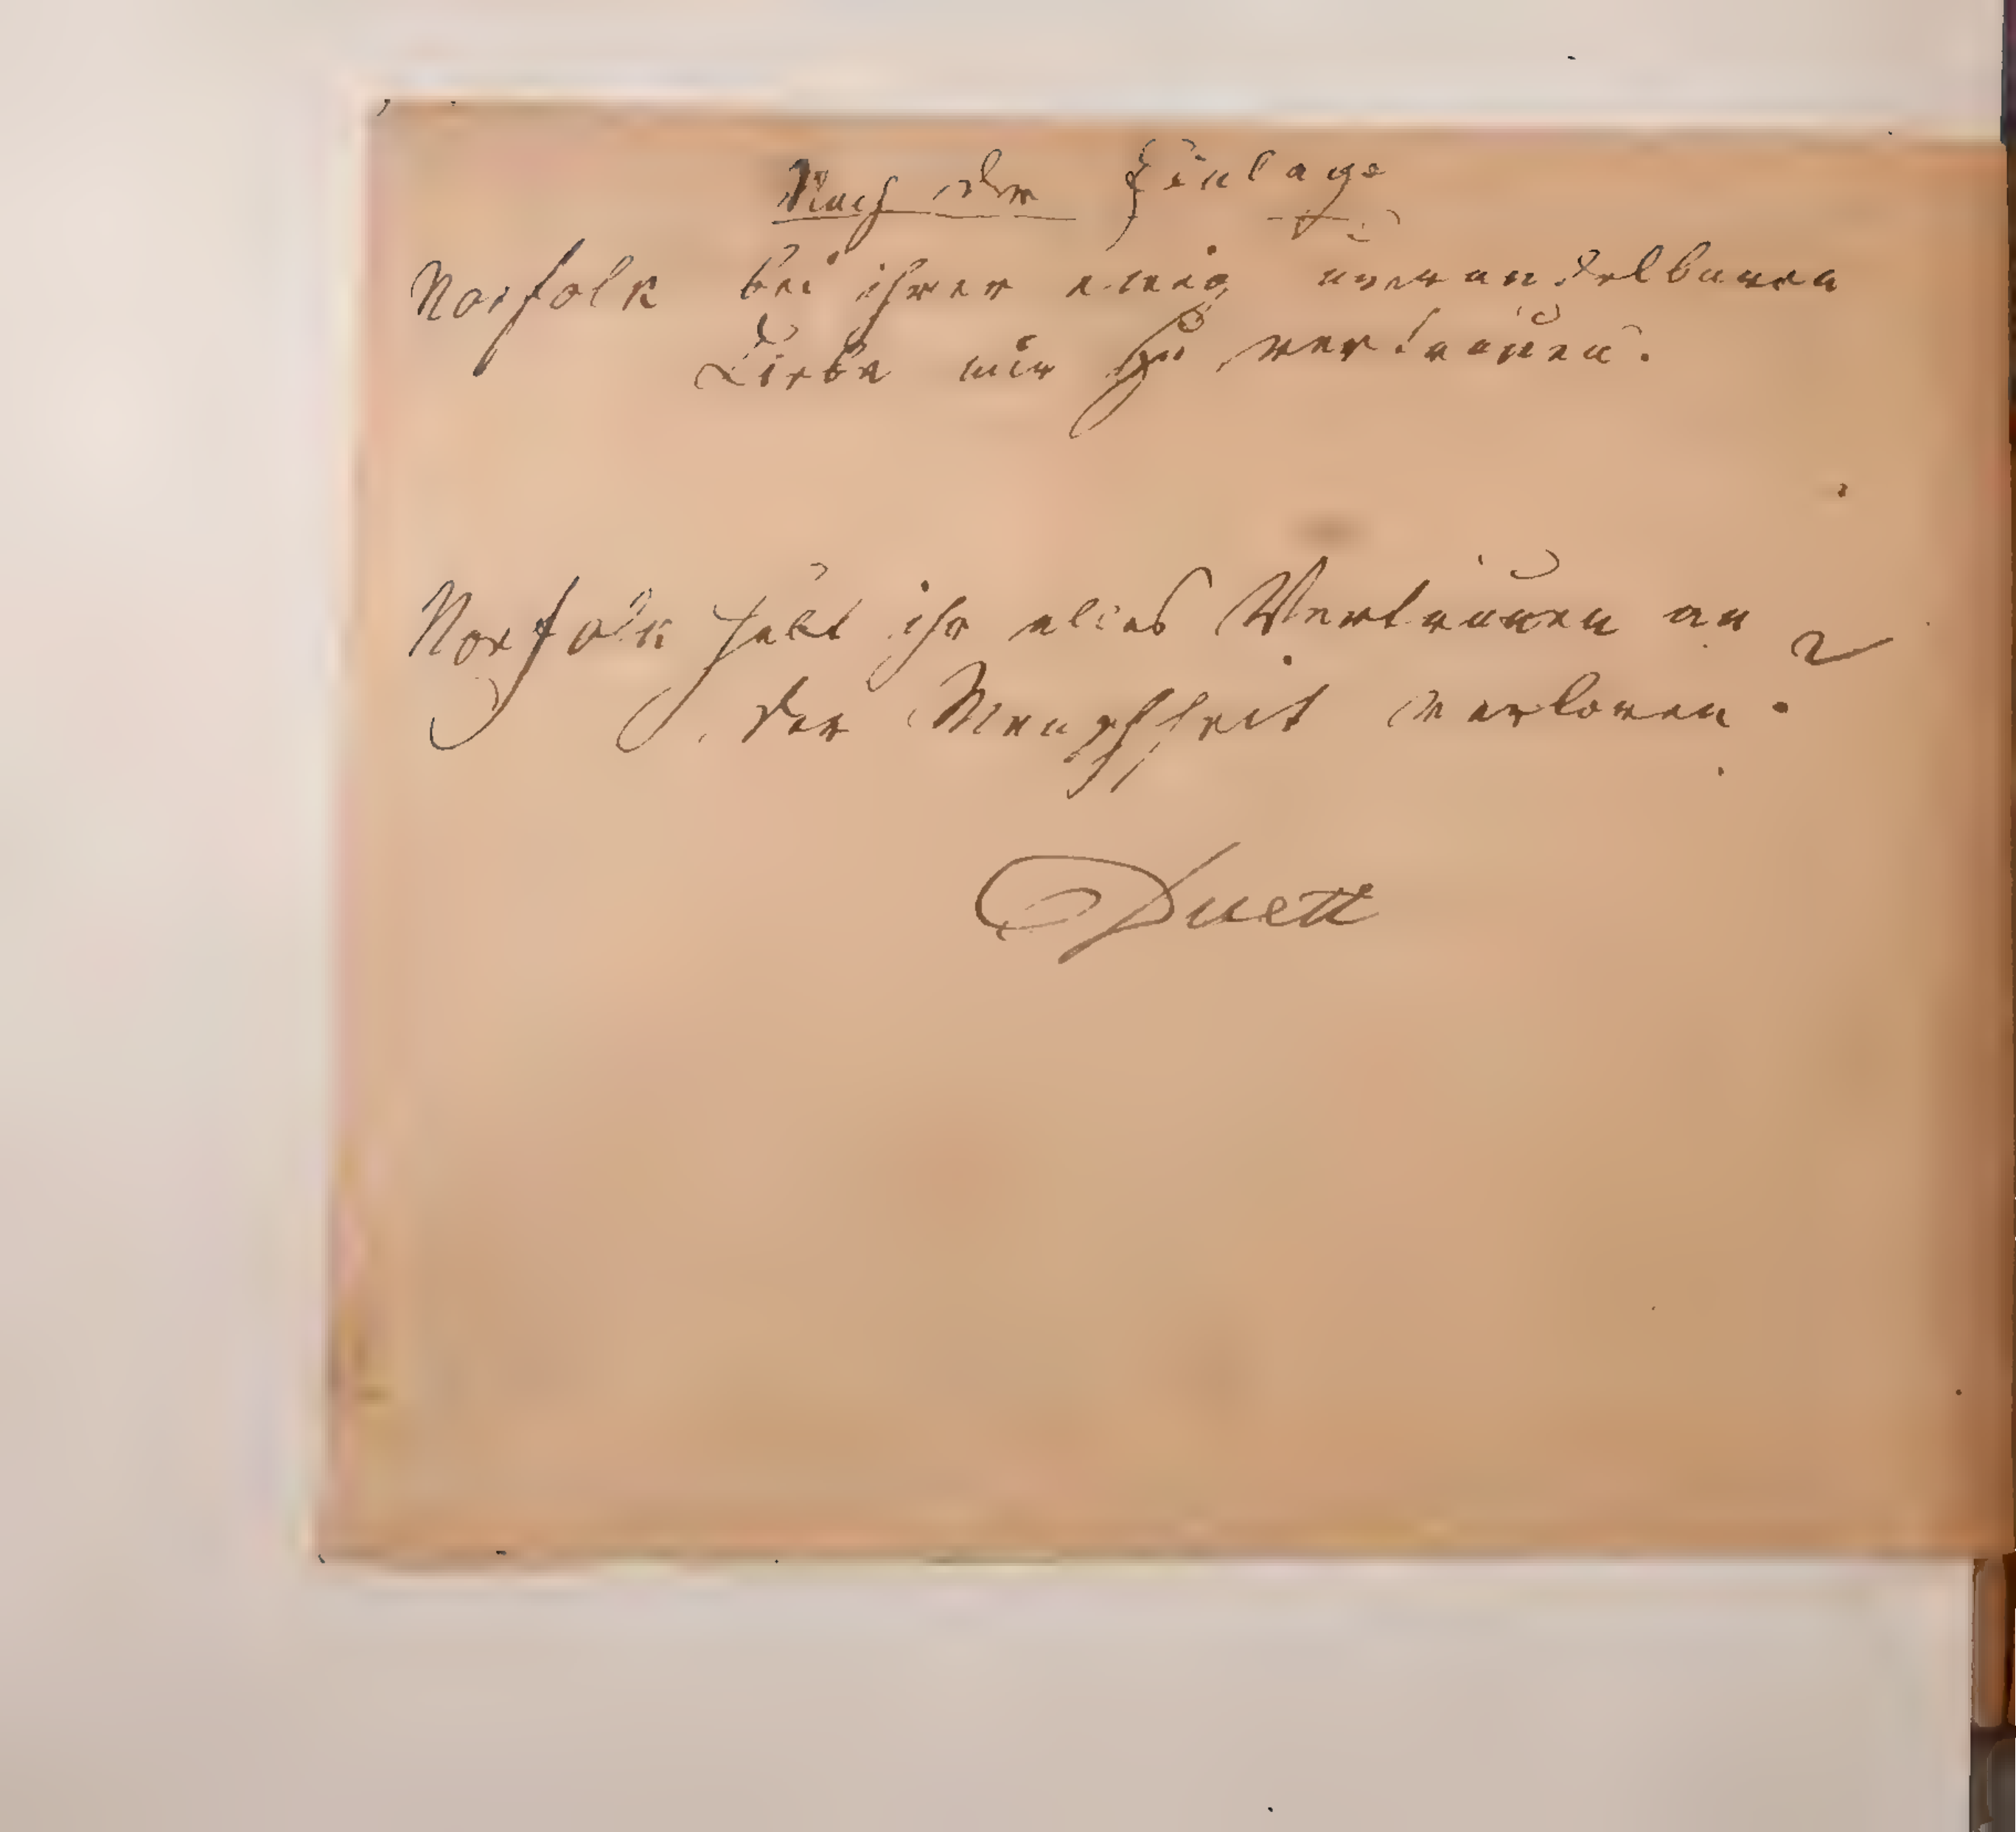 Nach der Einlage
Norfolk bei ihrer ewig unwandelbaren
Liebe mir zu vertrauen.
Norfolk habt ihr alles Vertrauen an
der Menschheit verloren?
Duett